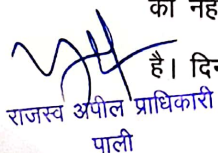 को नह
है। दिन
राजस्व अपील प्राधिकारी
पाली